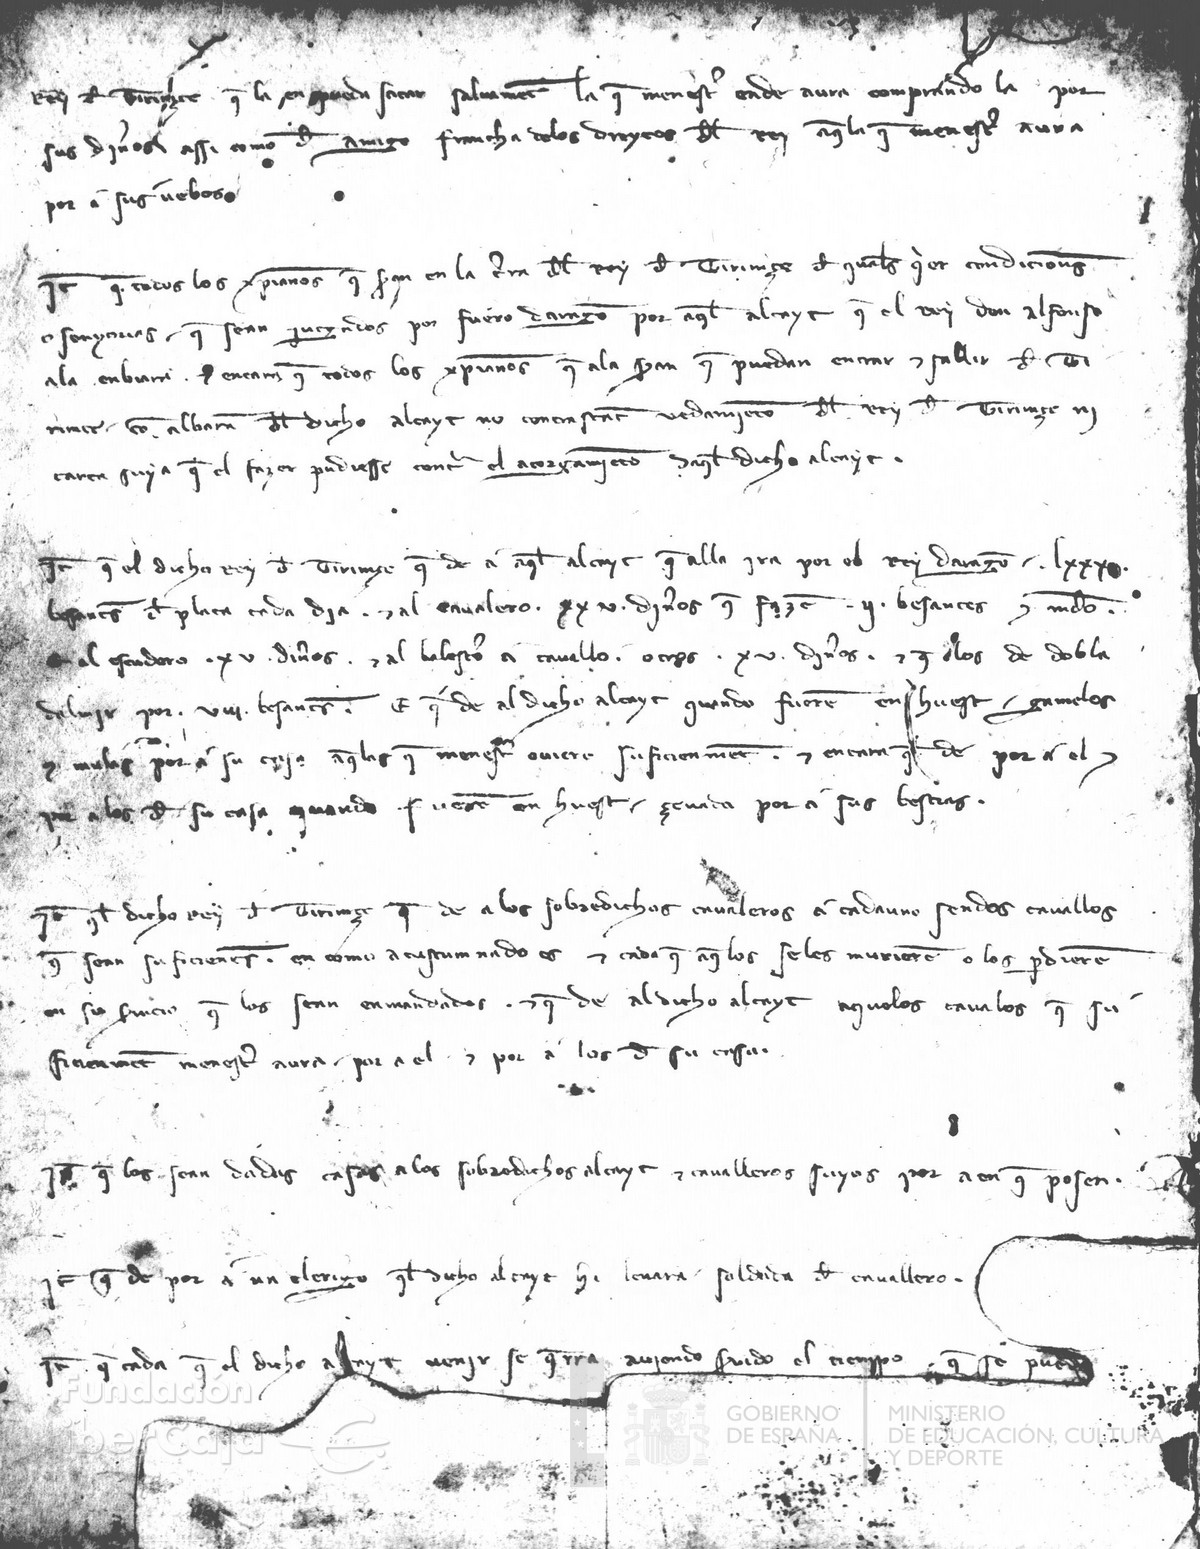 Rey d Tirimçe q la en pueda sacar saluament la q menestr ende aura comprando la por
sus diños assi como d amigo francha delos dreytos dl rey aqla q menestr aura
por a sus uebos
It q todos los xpianos q sean en la tra dl Rey d Tirimçe d quals qer condicions
o senyorias q sean jutgados por fuero daragon por aql alcayt q el Rey don alfonso
ala enbiara. encara q todos los xpianos q ala sean q puedan entrar e sallir d Ti
rimçe con albara dl dicho alcayt no contrastant vedamiento dl rey d Tirimçe ni
carta suya q el fazer pudiesse contra el atorgamiento daql dicho alcayt.
It q el dicho Rey d Tirimçe q de a aql alcayt q alla ira por ob Rey daragon. lxxx.
besants d plata cada dia. e al cavalero. xx v. diños q fazent .ii. besantes e medio.
al escudero .xv. diños. e al balestero a cavallo. otros .xv. diños. e q los de dobla
dalmir por. viii. besants. E q de al dicho alcayt quando fueren en huest gamelos
e mulas por a su casa aqlas q menestr oviere sufficienment. e encara q de por a el e
por a los d su casa quando fuesen en huest çevada por a sus bestias.
It ql dicho Rey d Tirimçe q de a los sobredichos cavaleros a cadauno sendos cavallos
q sean suficients. en como acustumnado es e cada q aqlos seles murieren o los pdieren
en su svicio q los sean enmandados. e q de al dicho alcayt aquelos cavalos q su
ficienment menestr aura por a el e por a los d su casa.
It q los sean dadas casas a los sobredichos alcayt e cavalleros suyos por a en q posen.
It q de por a un clerigo ql dicho alcayt hi levara soldada d cavallero.
It q cada q el dicho alcayt venir se qrra aviendo svido el tiempo q se puede
Fundación
iberCaja
GOBIERNO
DE ESPAÑA
MINISTERIO
DE EDUCACIÓN, CULTURA
Y DEPORTE